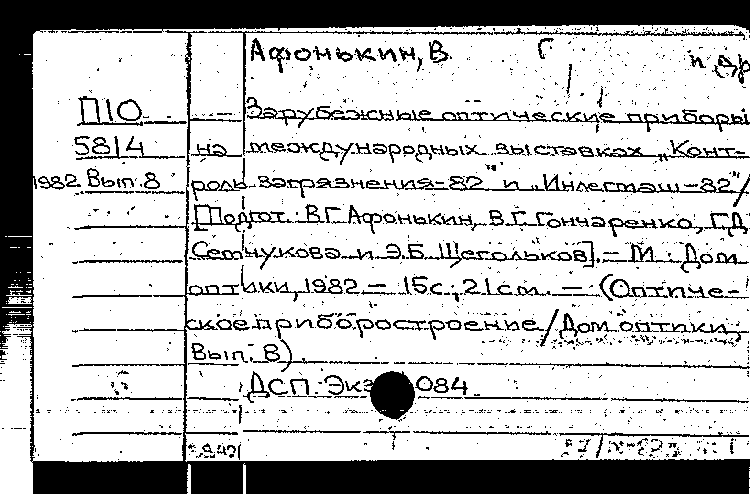 Афонькин, В. Г. и др
П10 Зарубежные оптические приборы
5814 на международных выставках „Конт-
1982 Вып. 8 роль загрязнения-82" и „Инлегмаш-82"/
[Подгот. В.Г. Афонькин, В.Г. Гончаренко, Г.Д.
и Э.Б. Щегольков]. – М: Дом
оптики, 1982 – 15с.; 21см. – (Оптиче-
ское приборостроение/Дом оптики;
Вып. 8).
ДСП. Экз 084.